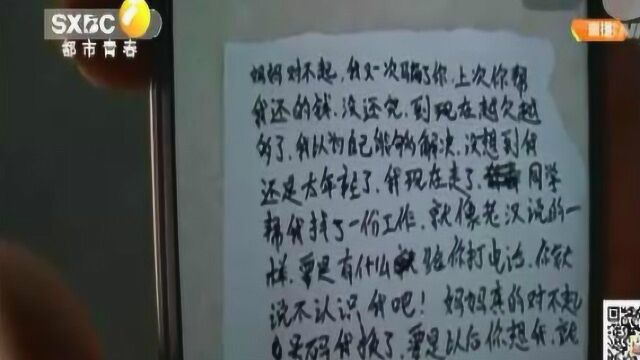 SXBC
都市青春
直播
妈妈对不起，我又一次骗了你，上次你帮
我还的钱，没还完，到现在越欠越
多了，我以为自己能够解决，没想到我
还是太年轻了，我现在走了，同学
帮我找了一份工作，就像老汉说的一
样，要是有什么给你打电话，你就
说不认识我吧！妈妈真的对不起
号码我换了，要是以后你想我，就